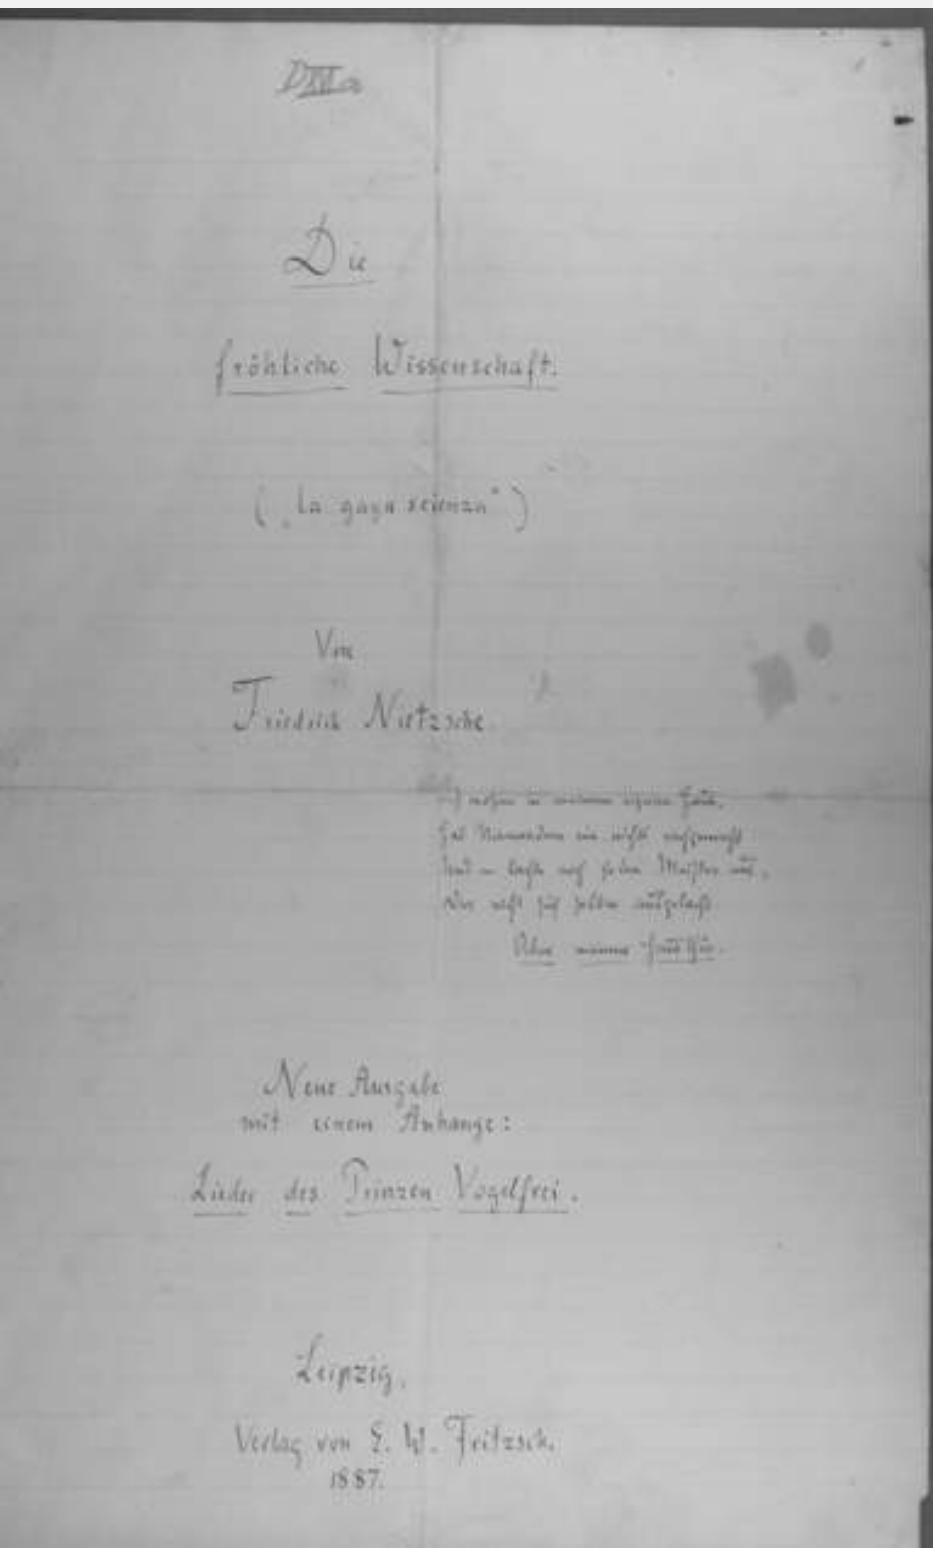 Die
fröhliche Wissenschaft.
(„la gaya scienza“)
Von
Friedrich Nietzsche.
wohne in meinem eignen Haus,
Hab Niemandem nie nichts nachgemacht
Und – lachte noch jeden Meister aus,
Der nicht sich selber ausgelacht.
Über meiner Hausthür.
Neue Ausgabe
mit einem Anhange:
Lieder des Prinzen Vogelfrei.
Leipzig,
Verlag von E. W. Fritzsch.
1887.